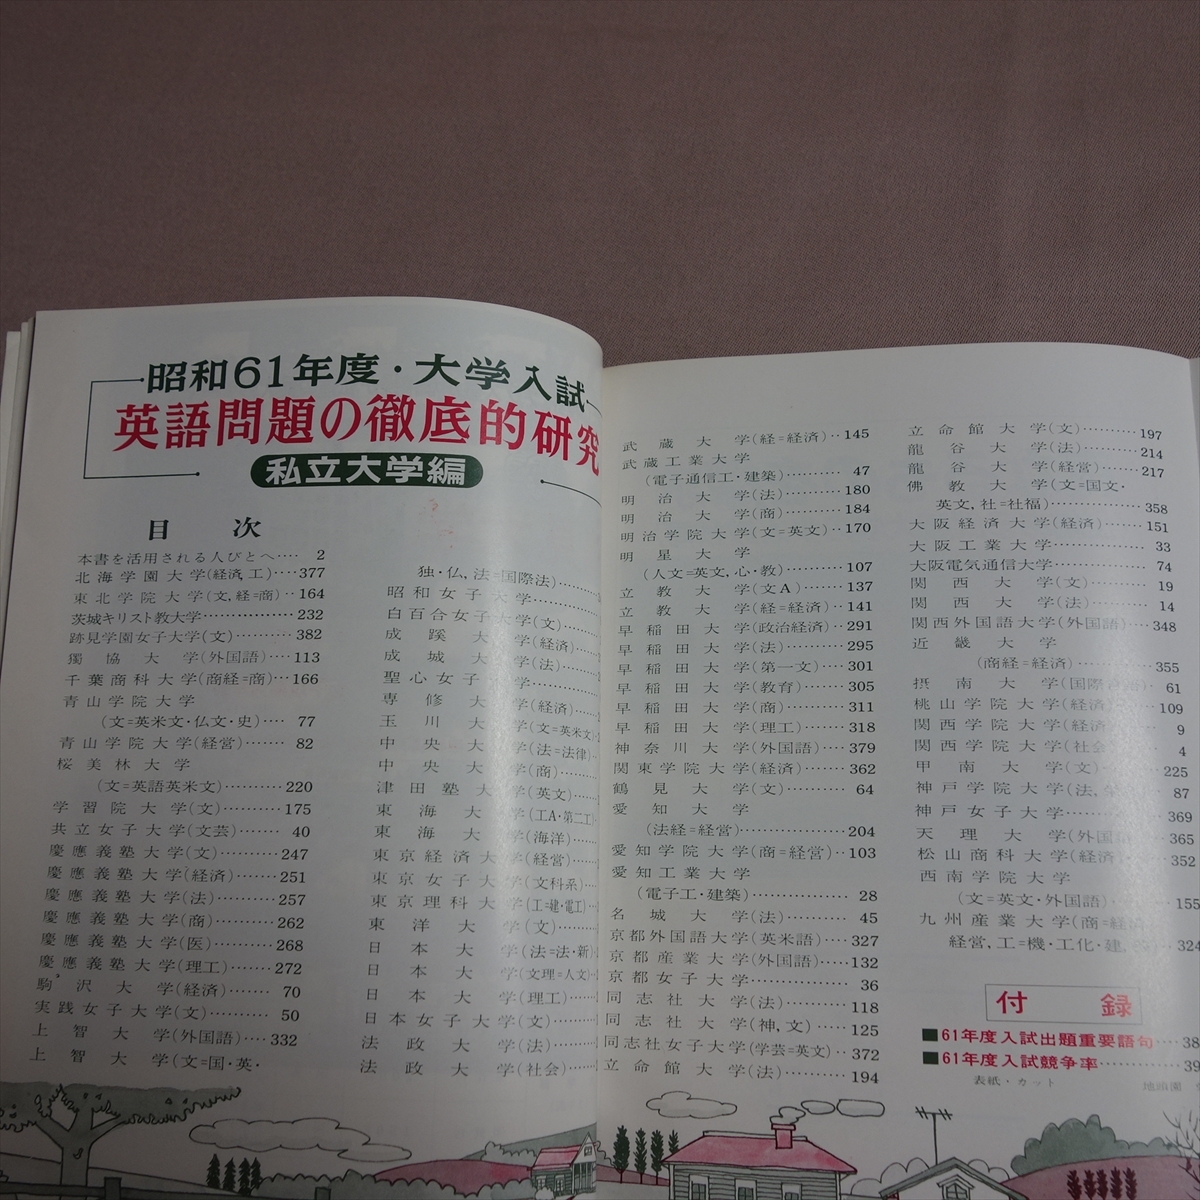 昭和61年度・大学入試
英語問題の徹底的研究
私立大学編
目 次
本書を活用される人びとへ…… 2
北海学園大学(経済,工)……377
東北学院大学(文,経=商)…164
茨城キリスト教大学……232
跡見学園女子大学(文)……382
獨協大学(外国語)……113
千葉商科大学(商経=商)…166
青山学院大学
(文=英米文・仏文・史)…… 77
青山学院大学(経営)…… 82
桜美林大学
(文=英語英米文)……220
学習院大学(文)……175
共立女子大学(文芸)…… 40
慶應義塾大学(文)……247
慶應義塾大学(経済)……251
慶應義塾大学(法)……257
慶應義塾大学(商)……262
慶應義塾大学(医)……268
慶應義塾大学(理工)……272
駒沢大学(経済)…… 70
実践女子大学(文)…… 50
上智大学(外国語)……332
上智大学(文=国・英・
独・仏,法=国際法)……
昭和女子大学……
白百合女子大学(文)……
成蹊大学(経済)……
成城大学(法)……
聖心女子大学……
専修大学(経済)……
玉川大学(文=英米文)
中央大学(法=法律)
中央大学(商)……
津田塾大学(英文)……
東海大学(工A・第二工)
東海大学(海洋)……
東京経済大学(経営)……
東京女子大学(文科系)…
東京理科大学(工=建・電工)
東洋大学(文)……
日本大学(法=法・新)
日本大学(文理=人文)
日本大学(理工)……
日本女子大学(文)……
法政大学(法)……
法政大学(社会)……
武蔵大学(経=経済)‥145
武蔵工業大学
(電子通信工・建築)…… 47
明治大学(法)……180
明治大学(商)……184
明治学院大学(文=英文)…170
明星大学
(人文=英文,心・教)……107
立教大学(文A)……137
立教大学(経=経済)……141
早稲田大学(政治経済)…291
早稲田大学(法)……295
早稲田大学(第一文)……301
早稲田大学(教育)……305
早稲田大学(商)……311
早稲田大学(理工)……318
神奈川大学(外国語)……379
関東学院大学(経済)……362
鶴見大学(文)…… 64
愛知大学
(法経=経営)……204
愛知学院大学(商=経営)‥103
愛知工業大学
(電子工・建築)…… 28
名城大学(法)…… 45
京都外国語大学(英米語)…327
京都産業大学(外国語)……132
京都女子大学…… 36
同志社大学(法)……118
同志社大学(神,文)……125
同志社女子大学(学芸=英文)‥372
立命館大学(法)……194
立命館大学(文)……197
龍谷大学(法)……214
龍谷大学(経営)……217
佛教大学(文=国文・
英文,社=社福)……358
大阪経済大学(経済)……151
大阪工業大学…… 33
大阪電気通信大学…… 74
関西大学(文)…… 19
関西大学(法)…… 14
関西外国語大学(外国語)…348
近畿大学
(商経=経済)……355
摂南大学(国際 61
桃山学院大学(経済 109
関西学院大学(経済 9
関西学院大学(社会 4
甲南大学(文)……225
神戸学院大学(法, 87
神戸女子大学……369
天理大学(外国 365
松山商科大学(経済 352
西南学院大学
(文=英文・外国語)……155
九州産業大学(商=経済
経営,工=機・工化・建, 324
付 録
■61年度入試出題重要語句……38
■61年度入試競争率……39
表紙・カット